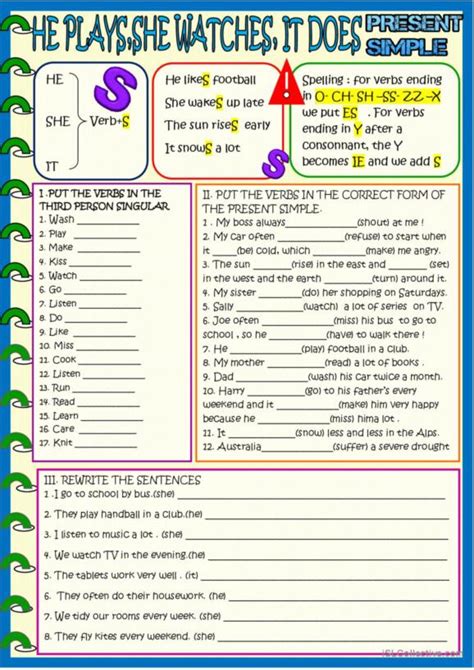 HE PLAYS,SHE WATCHES, IT DOES PRESENT SIMPLE
HE
SHE
IT
Verb+S
S
He likeS football
She wakeS up late
The sun riseS early
It snowS a lot
S
!
Spelling : for verbs ending
in O- CH- SH -SS- ZZ -X
we put ES . For verbs
ending in Y after a
consonnant, the Y
becomes IE and we add S
I.PUT THE VERBS IN THE
THIRD PERSON SINGULAR
1. Wash ____________
2. Play ____________
3. Make ____________
4. Kiss ____________
5. Watch ____________
6. Go ____________
7. Listen ____________
8. Do ____________
9. Like ____________
10. Miss ____________
11. Cook ____________
12. Listen ____________
13. Run ____________
14. Read ____________
15. Learn ____________
16. Care ____________
17. Knit ____________
II. PUT THE VERBS IN THE CORRECT FORM OF
THE PRESENT SIMPLE.
1 . My boss always____________(shout) at me !
2. My car often __________(refuse) to start when
it ____(be) cold, which __________(make) me angry.
3. The sun ________(rise) in the east and ________ (set)
in the west and the earth __________(turn) around it.
4. My sister _________(do) her shopping on Saturdays.
5. Sally __________(watch) a lot of series on TV.
6. Joe often __________(miss) his bus to go to
school , so he _______(have) to walk there !
7. He __________(play) football in a club.
8. My mother ________(read) a lot of books .
9. Dad __________(wash) his car twice a month.
10. Harry _______(go) to his father's every
weekend and it _____(make) him very happy
because he _______(miss) hima lot .
11. It __________(snow) less and less in the Alps.
12. Australia________(suffer) a severe drought
III. REWRITE THE SENTENCES
1 .I go to school by bus.(she) ____________
2. They play handball in a club.(he) ____________
3. I listen to music a lot . (she) ____________
4. We watch TV in the evening.(he) ____________
5. The tablets work very well . (it) ____________
6. They often do their housework. (he) ____________
7. We tidy our rooms every week. (she) ____________
8. They fly kites every week.(he) ____________
iSLCollective.com